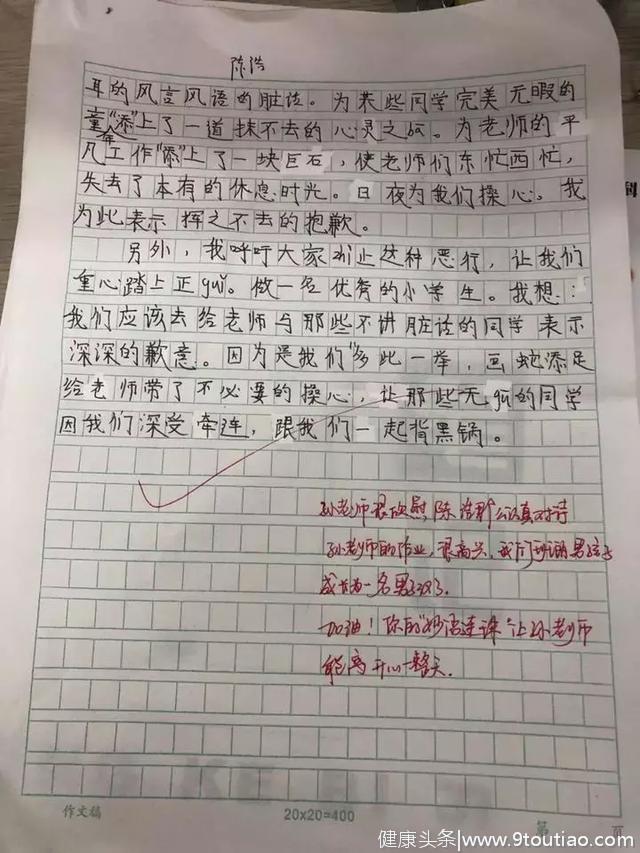 陈浩
耳的风言风语的脏话。为某些同学完美无暇的
童年“添”上了一道抹不去的心灵之疤。为老师的平
凡工作“添”上了一块巨石,使老师们东忙西忙,
失去了本有的休息时光。日夜为我们操心,我
为此表示挥之不去的抱歉。
另外,我呼吁大家制止这种恶行,让我们
重心踏上正guǐ。做一名优秀的小学生。我想:
我们应该去给老师与那些不讲脏话的同学表示
深深的歉意。因为是我们“多此一举,画蛇添足
给老师带了不必要的操心,让那些无gū的同学
因我们深受牵连,跟我们一起背黑锅。
孙老师很欣慰,陈浩那么认真对待
孙老师的作业,很高兴,我们班的男孩
成长为一名男子汉了。
加油!你的“妙语连珠”让孙老师
能高开心一整天.
作文稿
20x20=400
第
页
健康头条/www.9toutiao.com